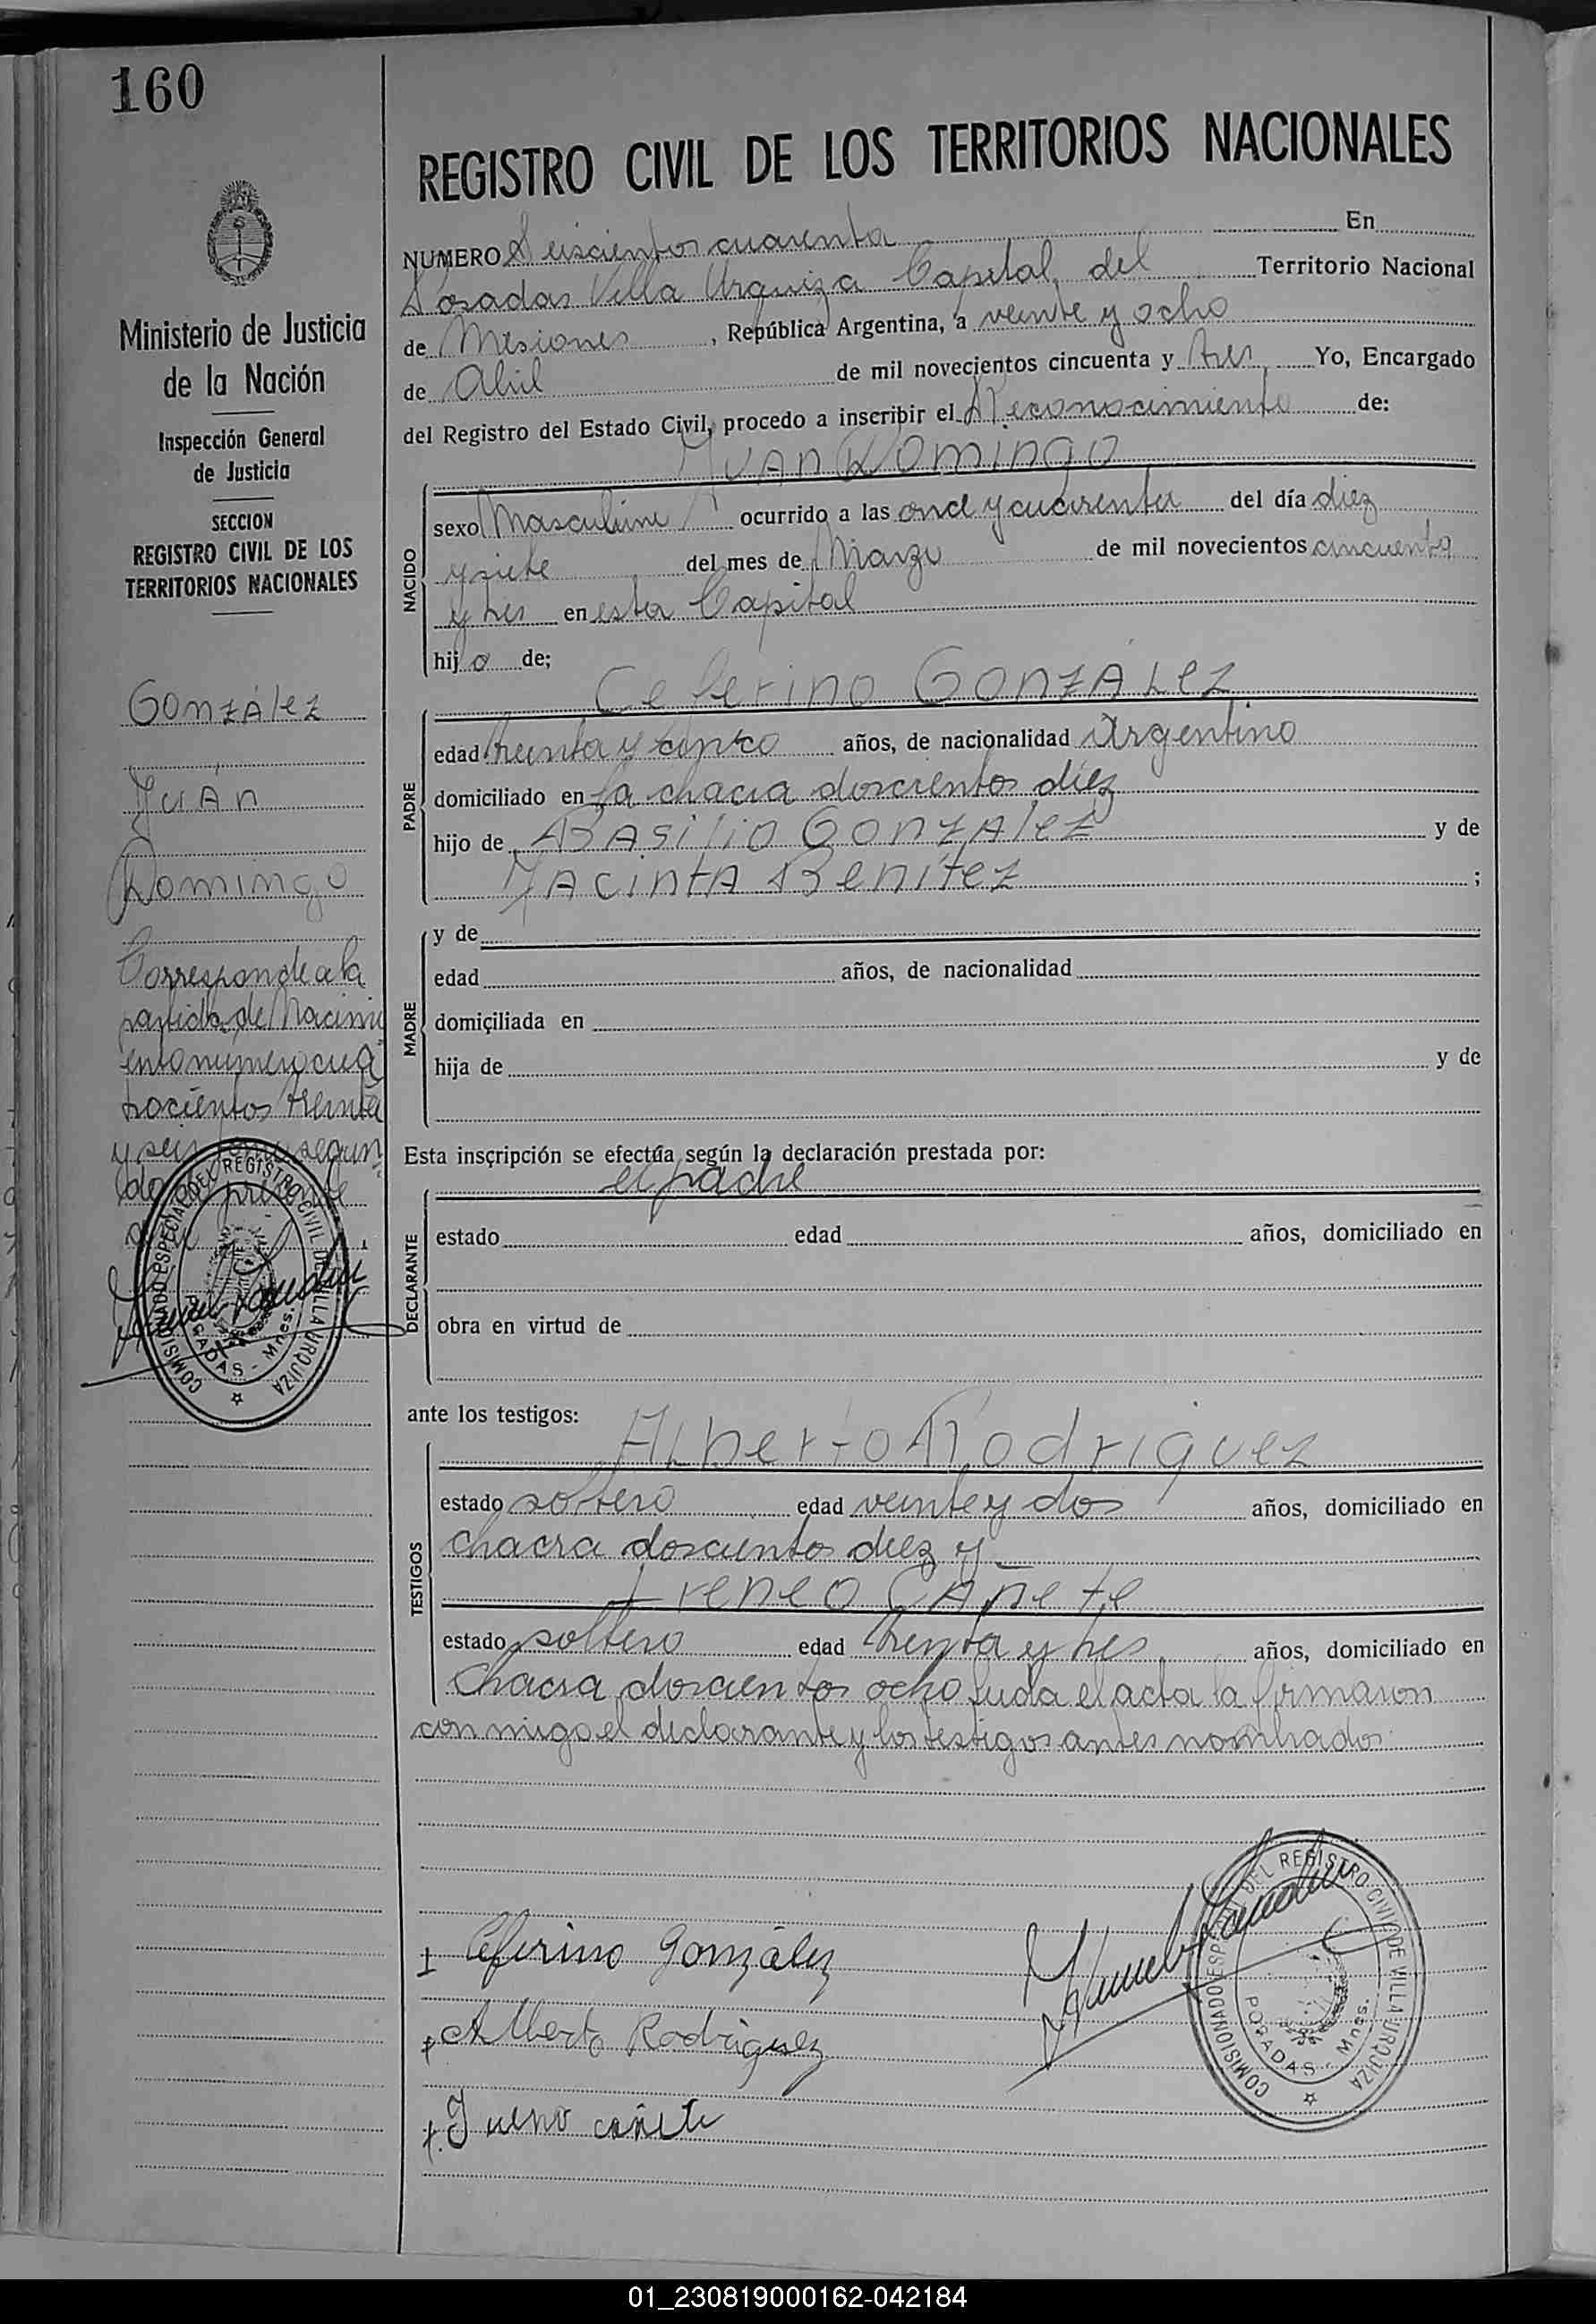 160
REGISTRO CIVIL DE LOS TERRITORIOS NACIONALES
Ministerio de Justicia
de la Nación
Inspección General
de Justicia
SECCION
REGISTRO CIVIL DE LOS
TERRITORIOS NACIONALES
González
Juán
Domingo
Corresponde a la
partida de Nacimi
ento numero cua
trocientos treinta
y seis tomo segun
do
COMISIONADO ESPECIAL DEL REGISTRO CIVIL DE VILLA URQUIZA
POSADAS - Mnes.
NUMERO Seiscientos cuarenta En
Posadas Villa Urquiza Capital del Territorio Nacional
de Misiones, República Argentina, a veinte y ocho
de Abril de mil novecientos cincuenta y tres Yo, Encargado
del Registro del Estado Civil, procedo a inscribir el Reconocimiento de:
Juan Domingo
NACIDO
sexo Masculino ocurrido a las once y cuarenta del día diez
y siete del mes de Marzo de mil novecientos cincuenta
y tres en esta Capital
hijo de;
Ceferino González
PADRE
edad treinta y cinco años, de nacionalidad Argentino
domiciliado en la chacra doscientos diez
hijo de Basilio González y de
Jacinta Benítez ;
MADRE
y de
edad años, de nacionalidad
domiciliada en
hija de y de
Esta inscripción se efectúa según la declaración prestada por:
el padre
DECLARANTE
estado edad años, domiciliado en
obra en virtud de
ante los testigos:
Alberto Rodriguez
TESTIGOS
estado soltero edad veinte y dos años, domiciliado en
chacra doscientos diez y
Ireneo Cañete
estado soltero edad treinta y tres años, domiciliado en
chacra doscientos ocho Leida el acta la firmaron
conmigo el declarante y los testigos antes nombrados
Ceferino González
Alberto Rodriguez
Ireneo cañete
COMISIONADO ESPECIAL DEL REGISTRO CIVIL DE VILLA URQUIZA
POSADAS - Mnes.
01_230819000162-042184